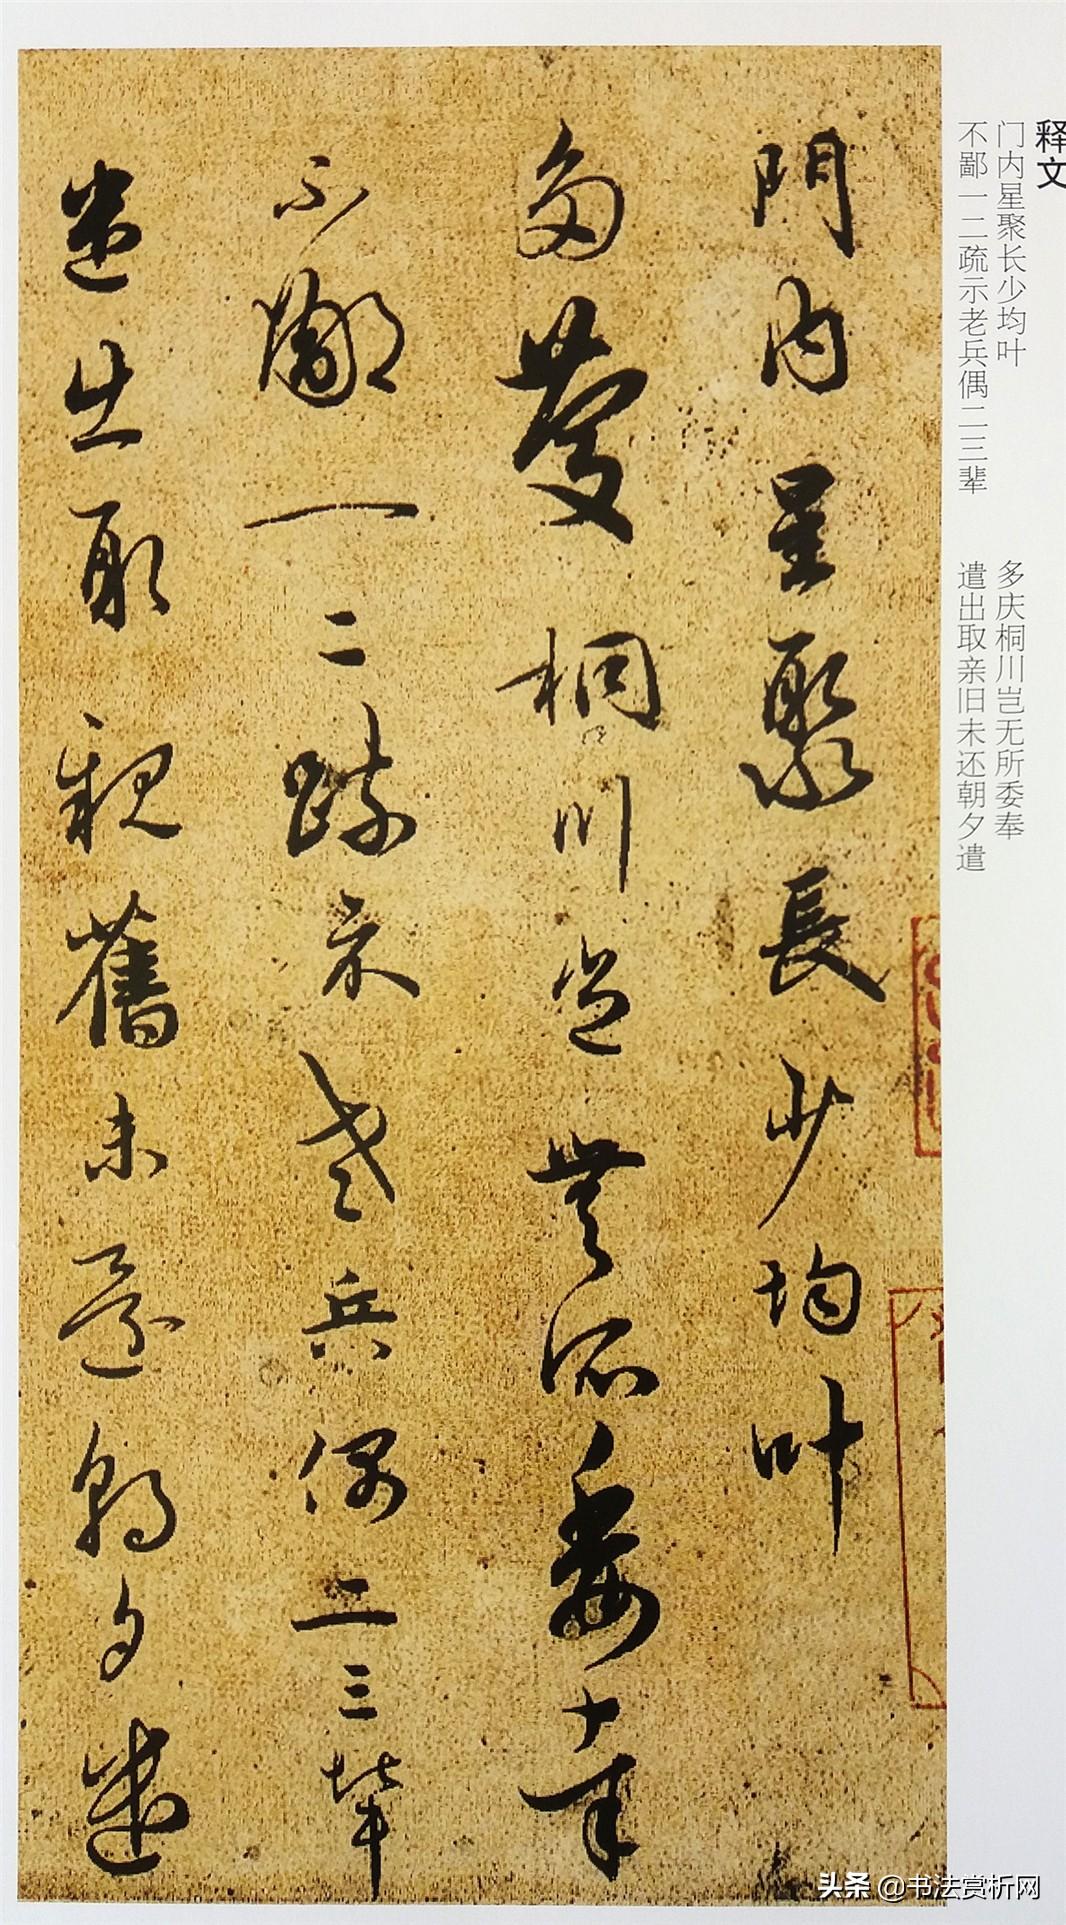 释文
门内星聚长少均叶
多庆桐川岂无所委奉
不鄙一二疏示老兵偶二三辈
遣出取亲旧未还朝夕遣
門内星聚長少均叶
多慶桐川豈無所委幸
不鄙一二疏示老兵偶二三輩
遣出取親舊未還朝夕遣
头条 @书法赏析网